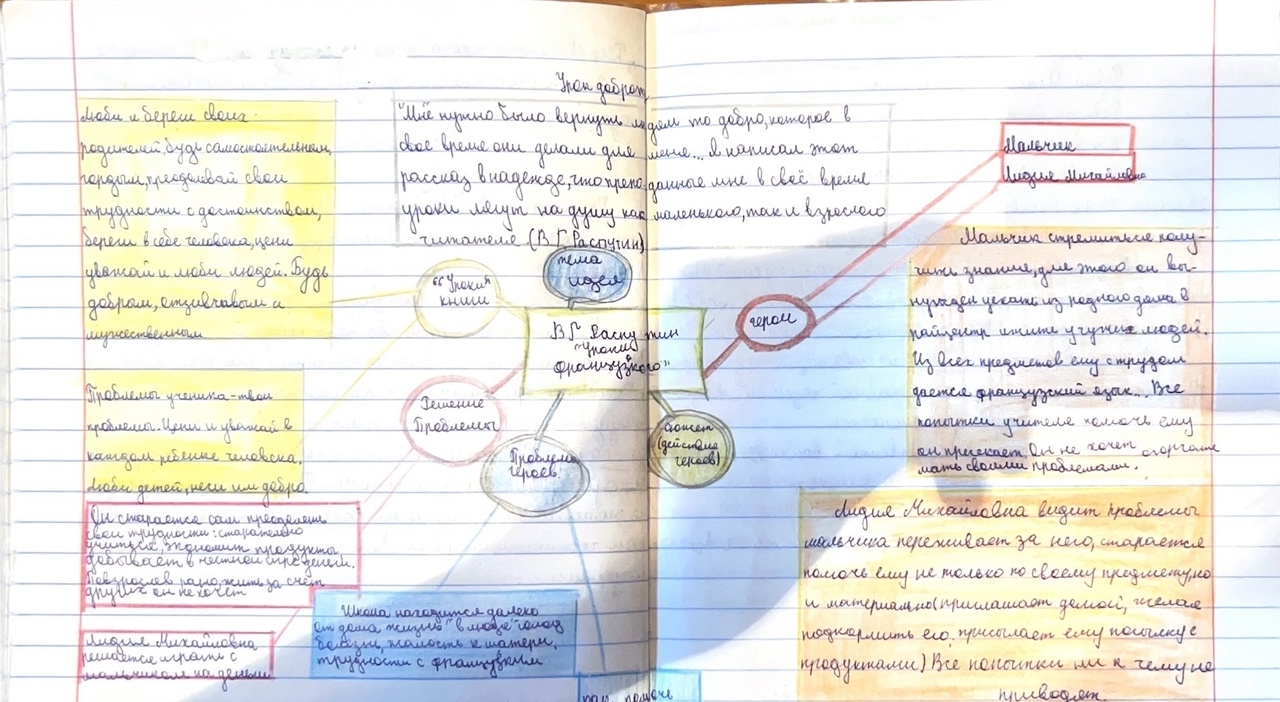 Урок доброт
"Мне нужно было вернуть людям то добро, которое в
своё время они делали для меня... Я написал этот
рассказ в надежде, что преподанные мне в своё время
уроки лягут на душу как маленького, так и взрослого
читателя (В.Г. Распутин)
Люби и береги своих
родителей, будь самостоятельным,
гордым, преодолевай свои
трудности с достоинством,
береги в себе человека, цени
уважай и люби людей. Будь
добрым, отзывчавым и
мужественным.
Проблемы ученика - твои
проблемы. Цени и уважай в
каждом ребёнке человека.
Люби детей, неси им добро.
Он старается сам преодолеть
свои трудности: старательно
учиться, экономит продукты,
добывает в честной игре деньги.
Повзрослев рано, жить за счёт
других он не хочет
Лидия Михайловна
решается играть с
мальчиком на деньги
"Уроки"
книги
тема
идея
В.Г. Распутин
"Уроки
французкого"
Решение
Проблемы
Проблема
героев
Сюжет
(действие
героев)
герои
Школа находится далеко
от дома жизнь "в люде" голод
болезни, жалость к матери,
трудности с французким
помочь
Мальчик
Лидия Михайловна
Мальчик стремиться полу-
чить знание, для этого он вы-
нужден уехать из родного дома в
райцентр и жить у чужих людей.
Из всех предметов ему с трудом
даётся французский язык... Все
попытки учителя помочь ему
он пресекает. Он не хочет огорчать
мать своими проблемами.
Лидия Михайловна видит проблемы
мальчика переживает за него, старается
помочь ему не только по своему предмету, но
и материально (приглашает домой, желая
подкормить его, присылает ему посылку с
продуктами) Все попытки ни к чему не
приводят.